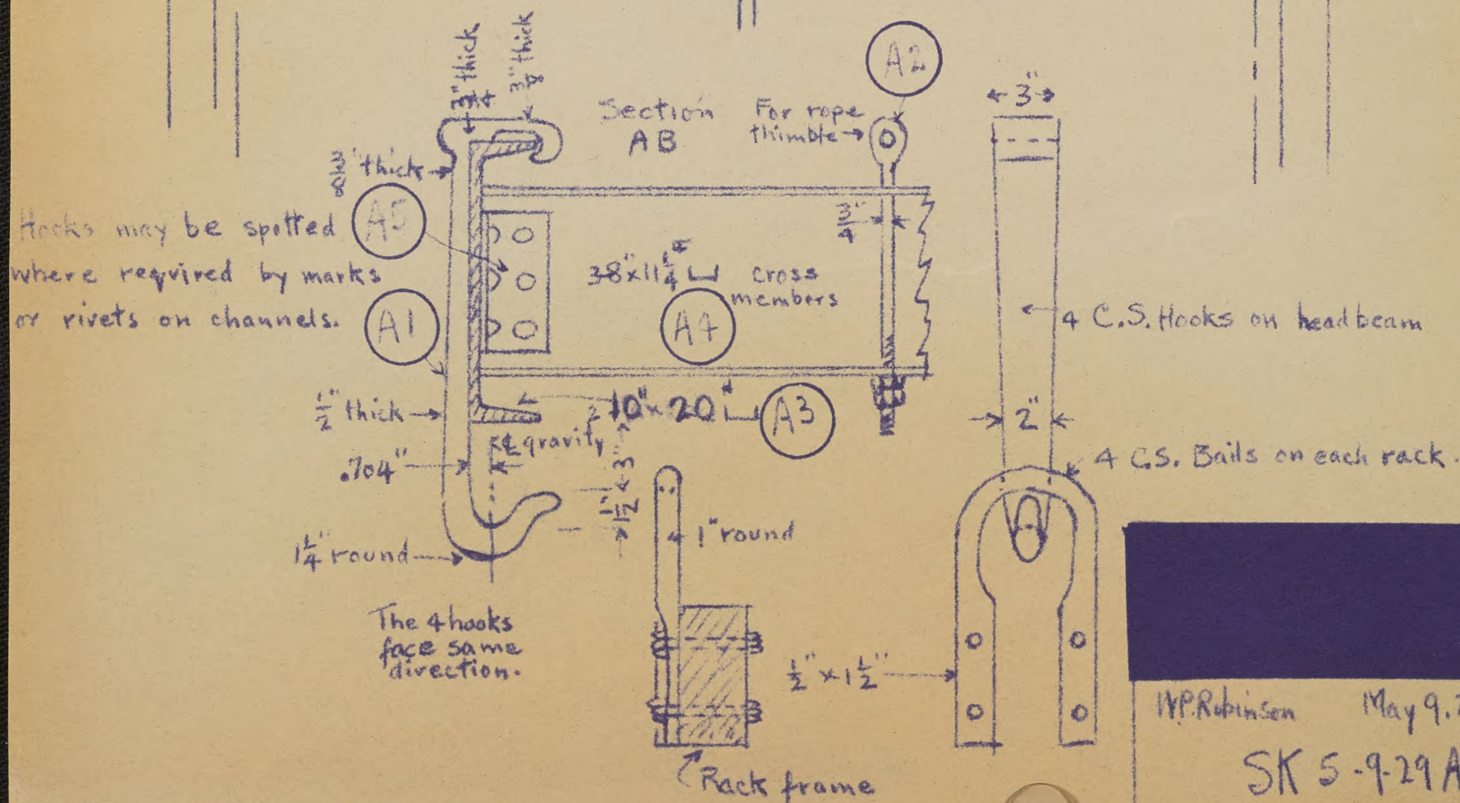 3/4" thick
3/8" thick
A2
3"
Section
AB
For rope
thimble
3/8" thick
A5
3/4"
Hooks may be spotted
where required by marks
or rivets on channels.
38"x11 1/4# cross
members
A1
A4
4 C.S. Hooks on headbeam
1/2" thick
10" x 20#
A3
2"
℄ gravity
.704"
3"
1 1/2"
4 C.S. Bails on each rack.
1" round
1 1/4" round
The 4 hooks
face same
direction.
1/2" x 1 1/2"
Rack frame
W.P. Robinson May 9.
SK 5-9-29 A